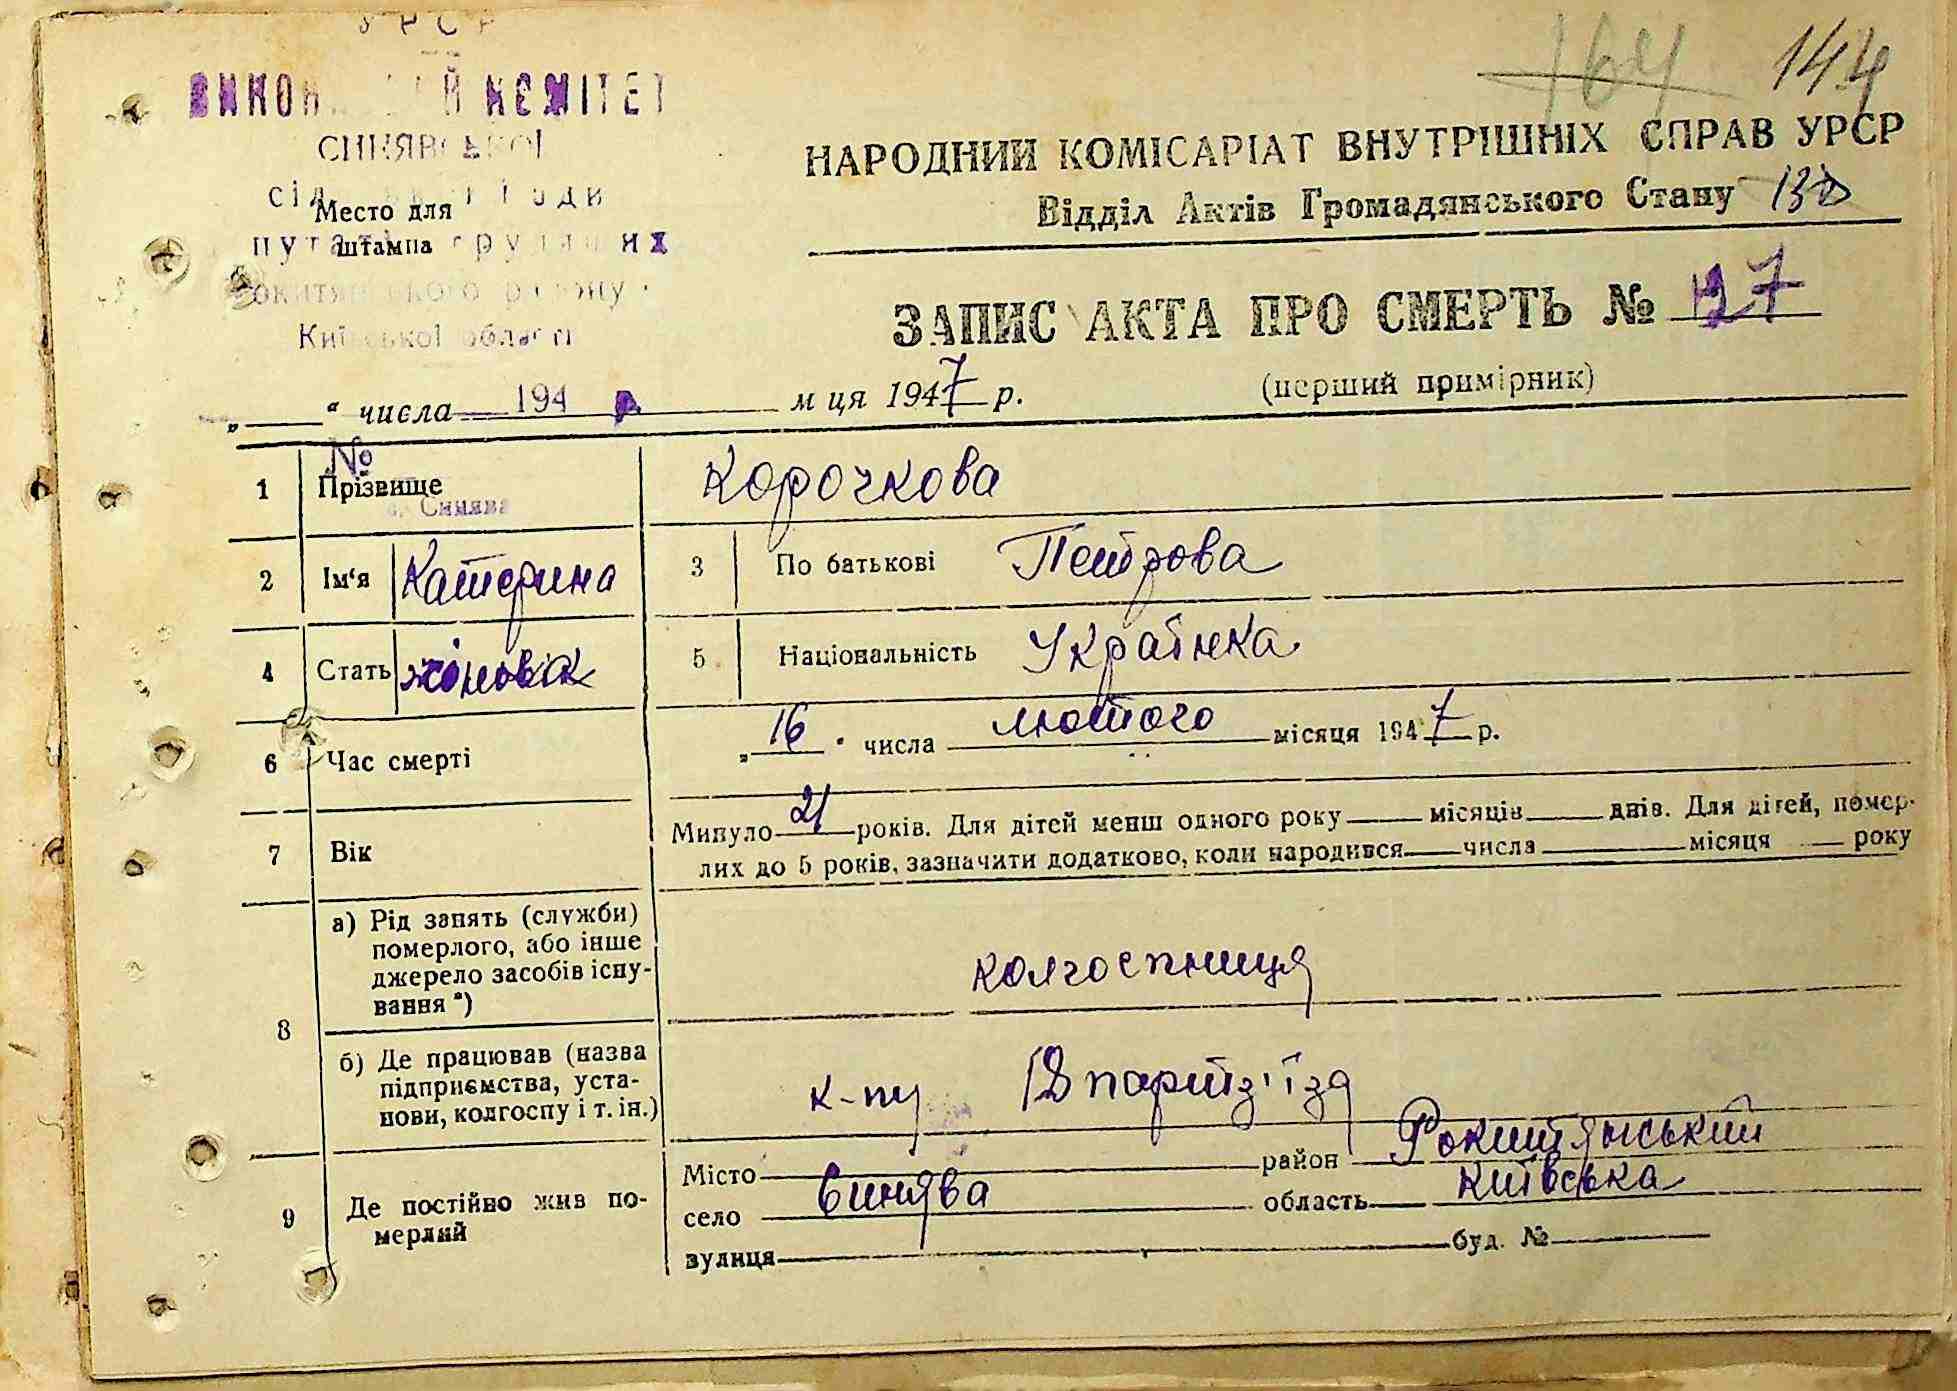 УРСР
164 144
ВИКОН КОМІТЕТ
СИНЯВСЬКОЇ
НАРОДНИЙ КОМІСАРІАТ ВНУТРІШНІХ СПРАВ УРСР
Место для
штампа
Відділ Актів Громадянського Стану 130
Київської області
ЗАПИС АКТА ПРО СМЕРТЬ № 127
(перший примірник)
„ “ числа 194 р. м ця 1947 р.
№
1 Прізвище Корочкова
с. Синява
2 Ім‘я Катерина 3 По батькові Петрова
4 Стать жіноваа 5 Національність Українка
6 Час смерті „16“ числа лютого місяця 1947 р.
7 Вік Минуло 21 років. Для дітей менш одного року місяців днів. Для дітей, помер-
лих до 5 років, зазначити додатково, коли народився числа місяця року
8 а) Рід занять (служби)
померлого, або інше
джерело засобів існу-
вання *)
колгоспниця
б) Де працював (назва
підприємства, уста-
нови, колгоспу і т. ін.)
к-пу 18 партз'їзд
9 Де постійно жив по-
мерлий
Місто район Рокитянський
село Синява область київська
вулиця буд. №